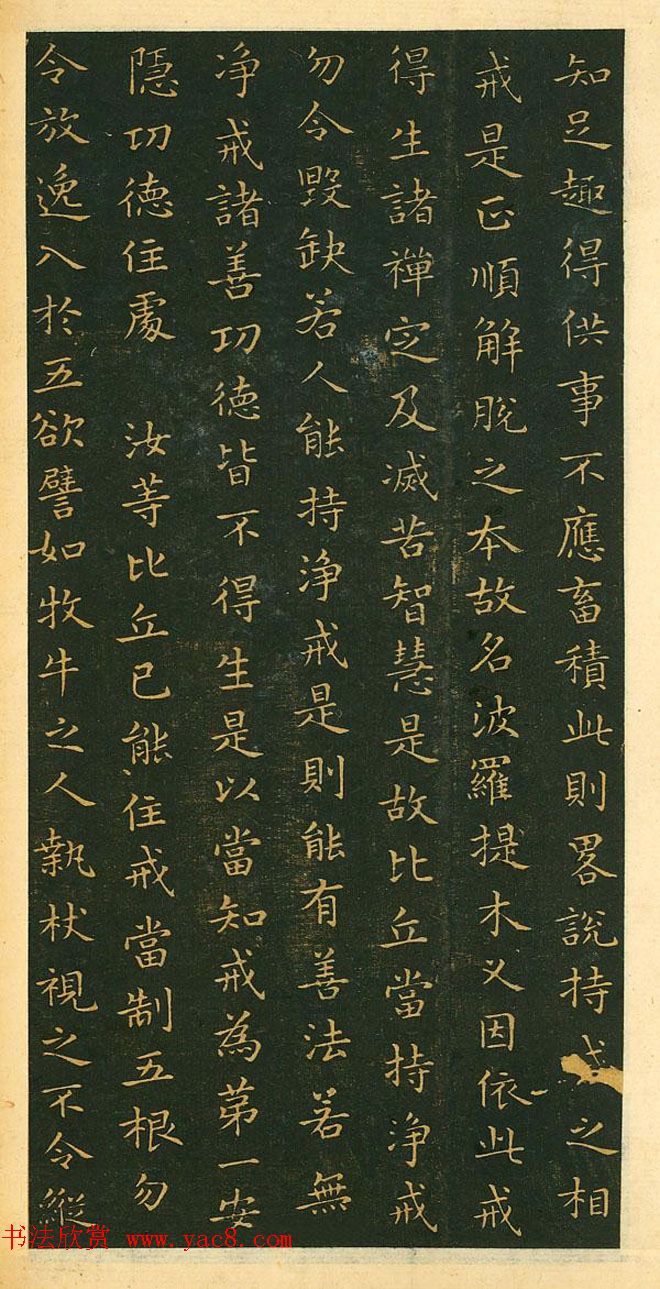 知足趣得供事不應畜積此則畧說持戒之相
戒是正順解脫之本故名波羅提木叉因依此戒
得生諸禪定及滅苦智慧是故比丘當持淨戒
勿令毀缺若人能持淨戒是則能有善法若無
淨戒諸善功德皆不得生是以當知戒為苐一安
隱功德住處 汝等比丘已能住戒當制五根勿
令放逸入於五欲譬如牧牛之人執杖視之不令縱
书法欣赏 www.yac8.com